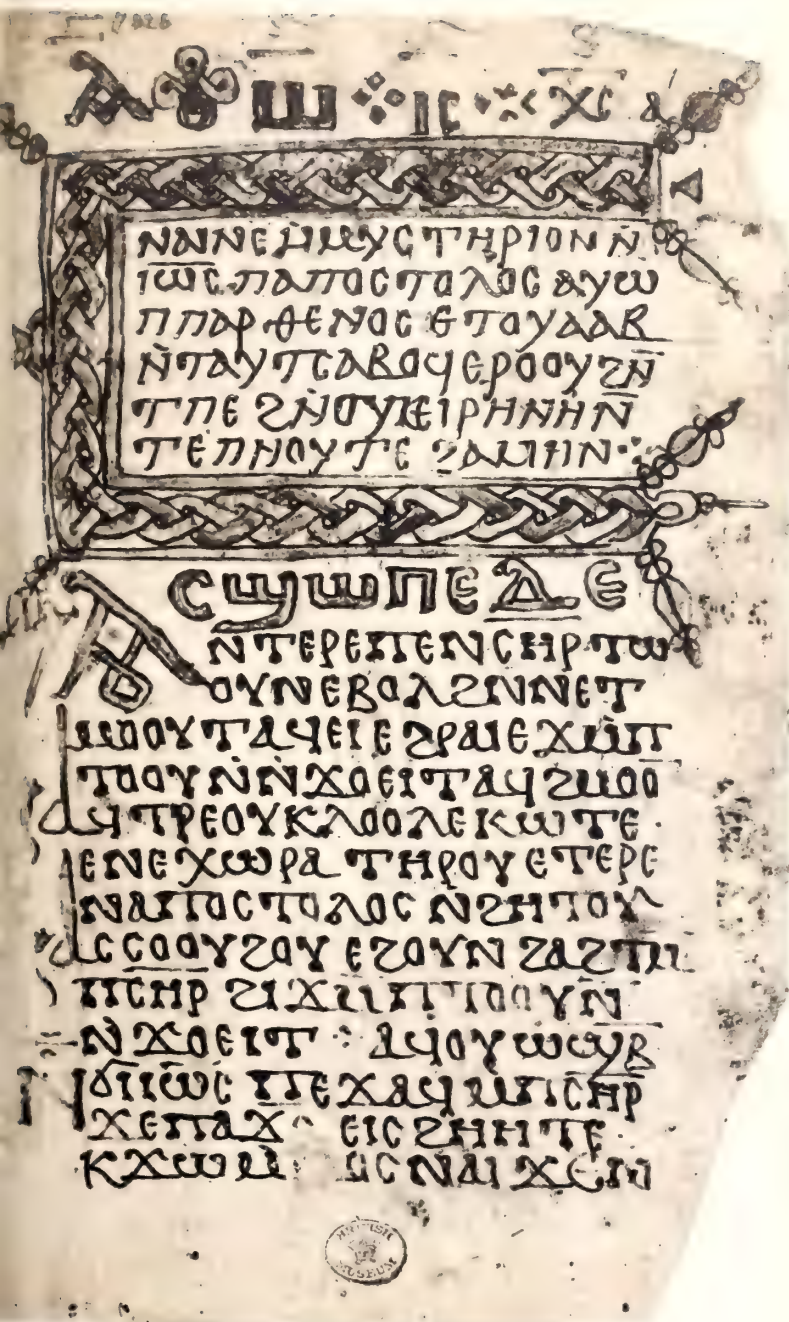 Ⲁ Ⲱ ⲒⲤ ⲬⲤ
ⲚⲀⲒⲚⲈⲘ̄ⲘⲨⲤⲦⲎⲢⲒⲞⲚ Ⲛ̄
ⲒⲰ̅Ⲥ ⲠⲀⲠⲞⲤⲦⲞⲖⲞⲤ ⲀⲨⲰ
ⲠⲠⲀⲢⲐⲈⲚⲞⲤ ⲈⲦⲞⲨⲀⲀⲂ
Ⲛ̄ⲦⲀⲨⲦⲤⲀⲂⲞϤ ⲈⲢⲞⲞⲨ ϨⲚ̄
ⲦⲠⲈ ϨⲚ̄ⲞⲨⲈⲒⲢⲎⲚⲎ Ⲛ̄
ⲦⲈⲠⲚⲞⲨⲦⲈ ϨⲀⲘⲎⲚ
ⲀⲤϢⲰⲠⲈ ⲆⲈ
ⲚⲦⲈⲢⲈⲠⲈⲚⲤⲎⲢ ⲦⲰ
ⲞⲨⲚ ⲈⲂⲞⲖ ϨⲚ ⲚⲈⲦ
ⲘⲞⲞⲨⲦ ⲀϤⲈⲒ ⲈϨⲢⲀⲒ ⲈϪⲘ̄Ⲡ
ⲦⲞⲞⲨ Ⲛ̄Ⲛ̄ϪⲞⲈⲒⲦ ⲀϤϨⲘⲞⲞ
ⲀϤⲦⲢⲈⲞⲨⲔⲖⲞⲞⲖⲈ ⲔⲰⲦⲈ
ⲈⲚⲈⲬⲰⲢⲀ ⲦⲎⲢⲞⲨ ⲈⲦⲈⲢⲈ
ⲚⲀⲠⲞⲤⲦⲞⲖⲞⲤ ⲚϨⲎⲦⲞⲨ
ⲀⲤⲤⲞⲞⲨϨⲞⲨ ⲈϨⲞⲨⲚ ϨⲀϨⲦⲘ̄
ⲠⲤⲎⲢ ϨⲒϪⲘ̄ⲠⲦⲞⲞⲨ Ⲛ̄
Ⲛ̄ϪⲞⲈⲒⲦ ⲀϤⲞⲨⲰϢⲂ̄
ⲚϬⲒⲒⲰ̅Ⲥ ⲠⲈϪⲀϤ ⲘⲠⲤⲎⲢ
ϪⲈⲠⲀϪ ⲈⲒⲤϨⲎⲎⲦⲈ
ⲔϪⲰ ⲚⲀⲒ ϪⲈⲚ
BRITISH
MUSEUM